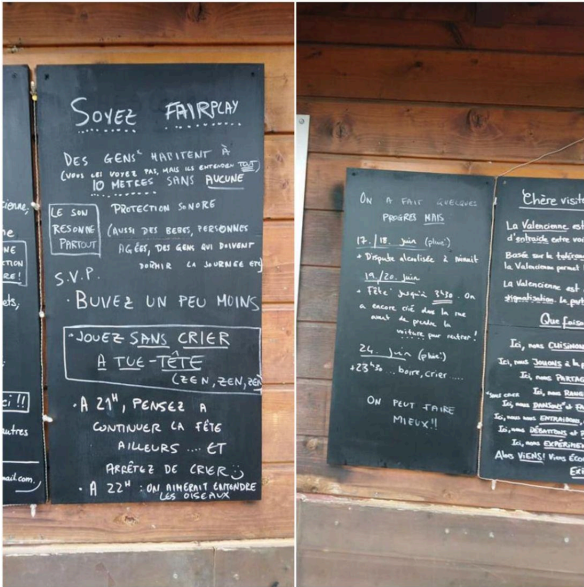 SOYEZ FAIRPLAY
DES GENS HABITENT À
(VOUS LES VOYEZ PAS, MAIS ILS ENTENDENT TOUT)
10 METRES SANS AUCUNE
LE SON
RESONNE
PARTOUT
PROTECTION SONORE
(AUSSI DES BEBES, PERSONNES
AGÉES, DES GENS QUI DOIVENT
DORMIR LA JOURNEE ETC
S.V.P.
· BUVEZ UN PEU MOINS
· JOUEZ SANS CRIER
A TUE-TÊTE
(ZEN, ZEN, ZEN
· A 21H, PENSEZ A
CONTINUER LA FÊTE
AILLEURS .... ET
ARRÊTEZ DE CRIER
· A 22H : ON AIMERAIT ENTENDRE
LES OISEAUX
ci !!
autres
mail.com
ON A FAIT QUELQUES
PROGRES MAIS
17./18. juin (pluie)
+ Dispute alcoolisée à minuit
19./20. juin
+ Fête jusqu'à 2h30. On
a encore crié dans la rue
avant de prendre la
voiture pour rentrer!
24. juin (pluie)
+23h30 ... boire, crier ....
ON PEUT FAIRE
MIEUX!!
Chère visite
La Valencienne est
d'entraide entre vo
Basée sur la toléran
la Valencienne permet
La Valencienne est
stigmatisation. la port
Que faison
Ici, nous CUISINON
Ici, nous JOUONS à la p
Ici, nous PARTAG
Ici, nous RANGE
"sans crier
Ici, nous DANSONS" et FA
Ici, nous nous ENTRAIDONS,
Ici, nous DÉBATTONS et P
Ici, nous EXPÉRIMEN
Alors VIENS! Viens ÉCO